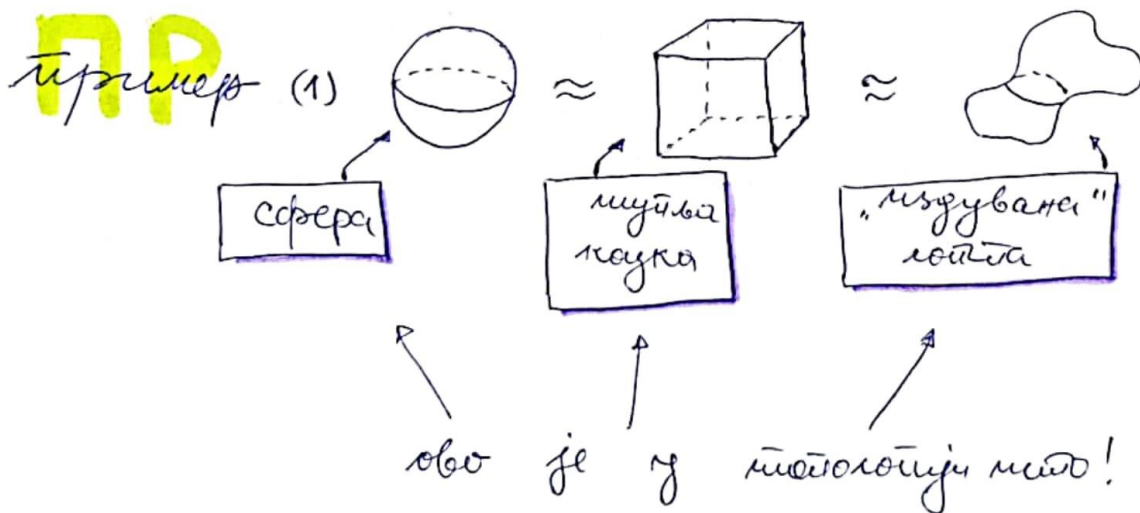 ПР
пример (1) ≈ ≈
сфера
шупља
коцка
„издувана“
лопта
ово је у топологији исто!